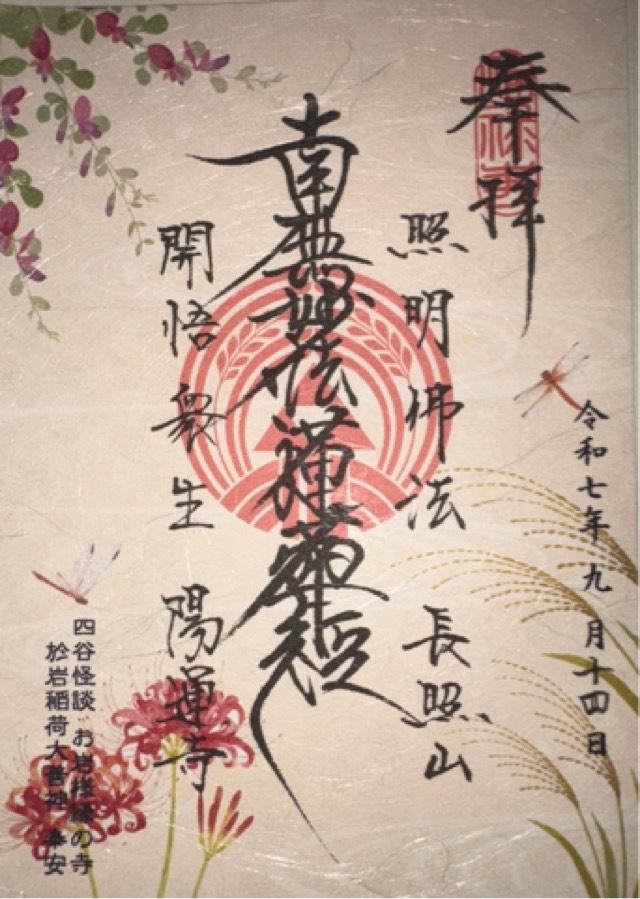 奉拝
令和七年九月十四日
照明佛法 長照山
南無妙法蓮華経
開悟衆生 陽運寺
四谷怪談 お岩様縁の寺
於岩稲荷大善神奉安